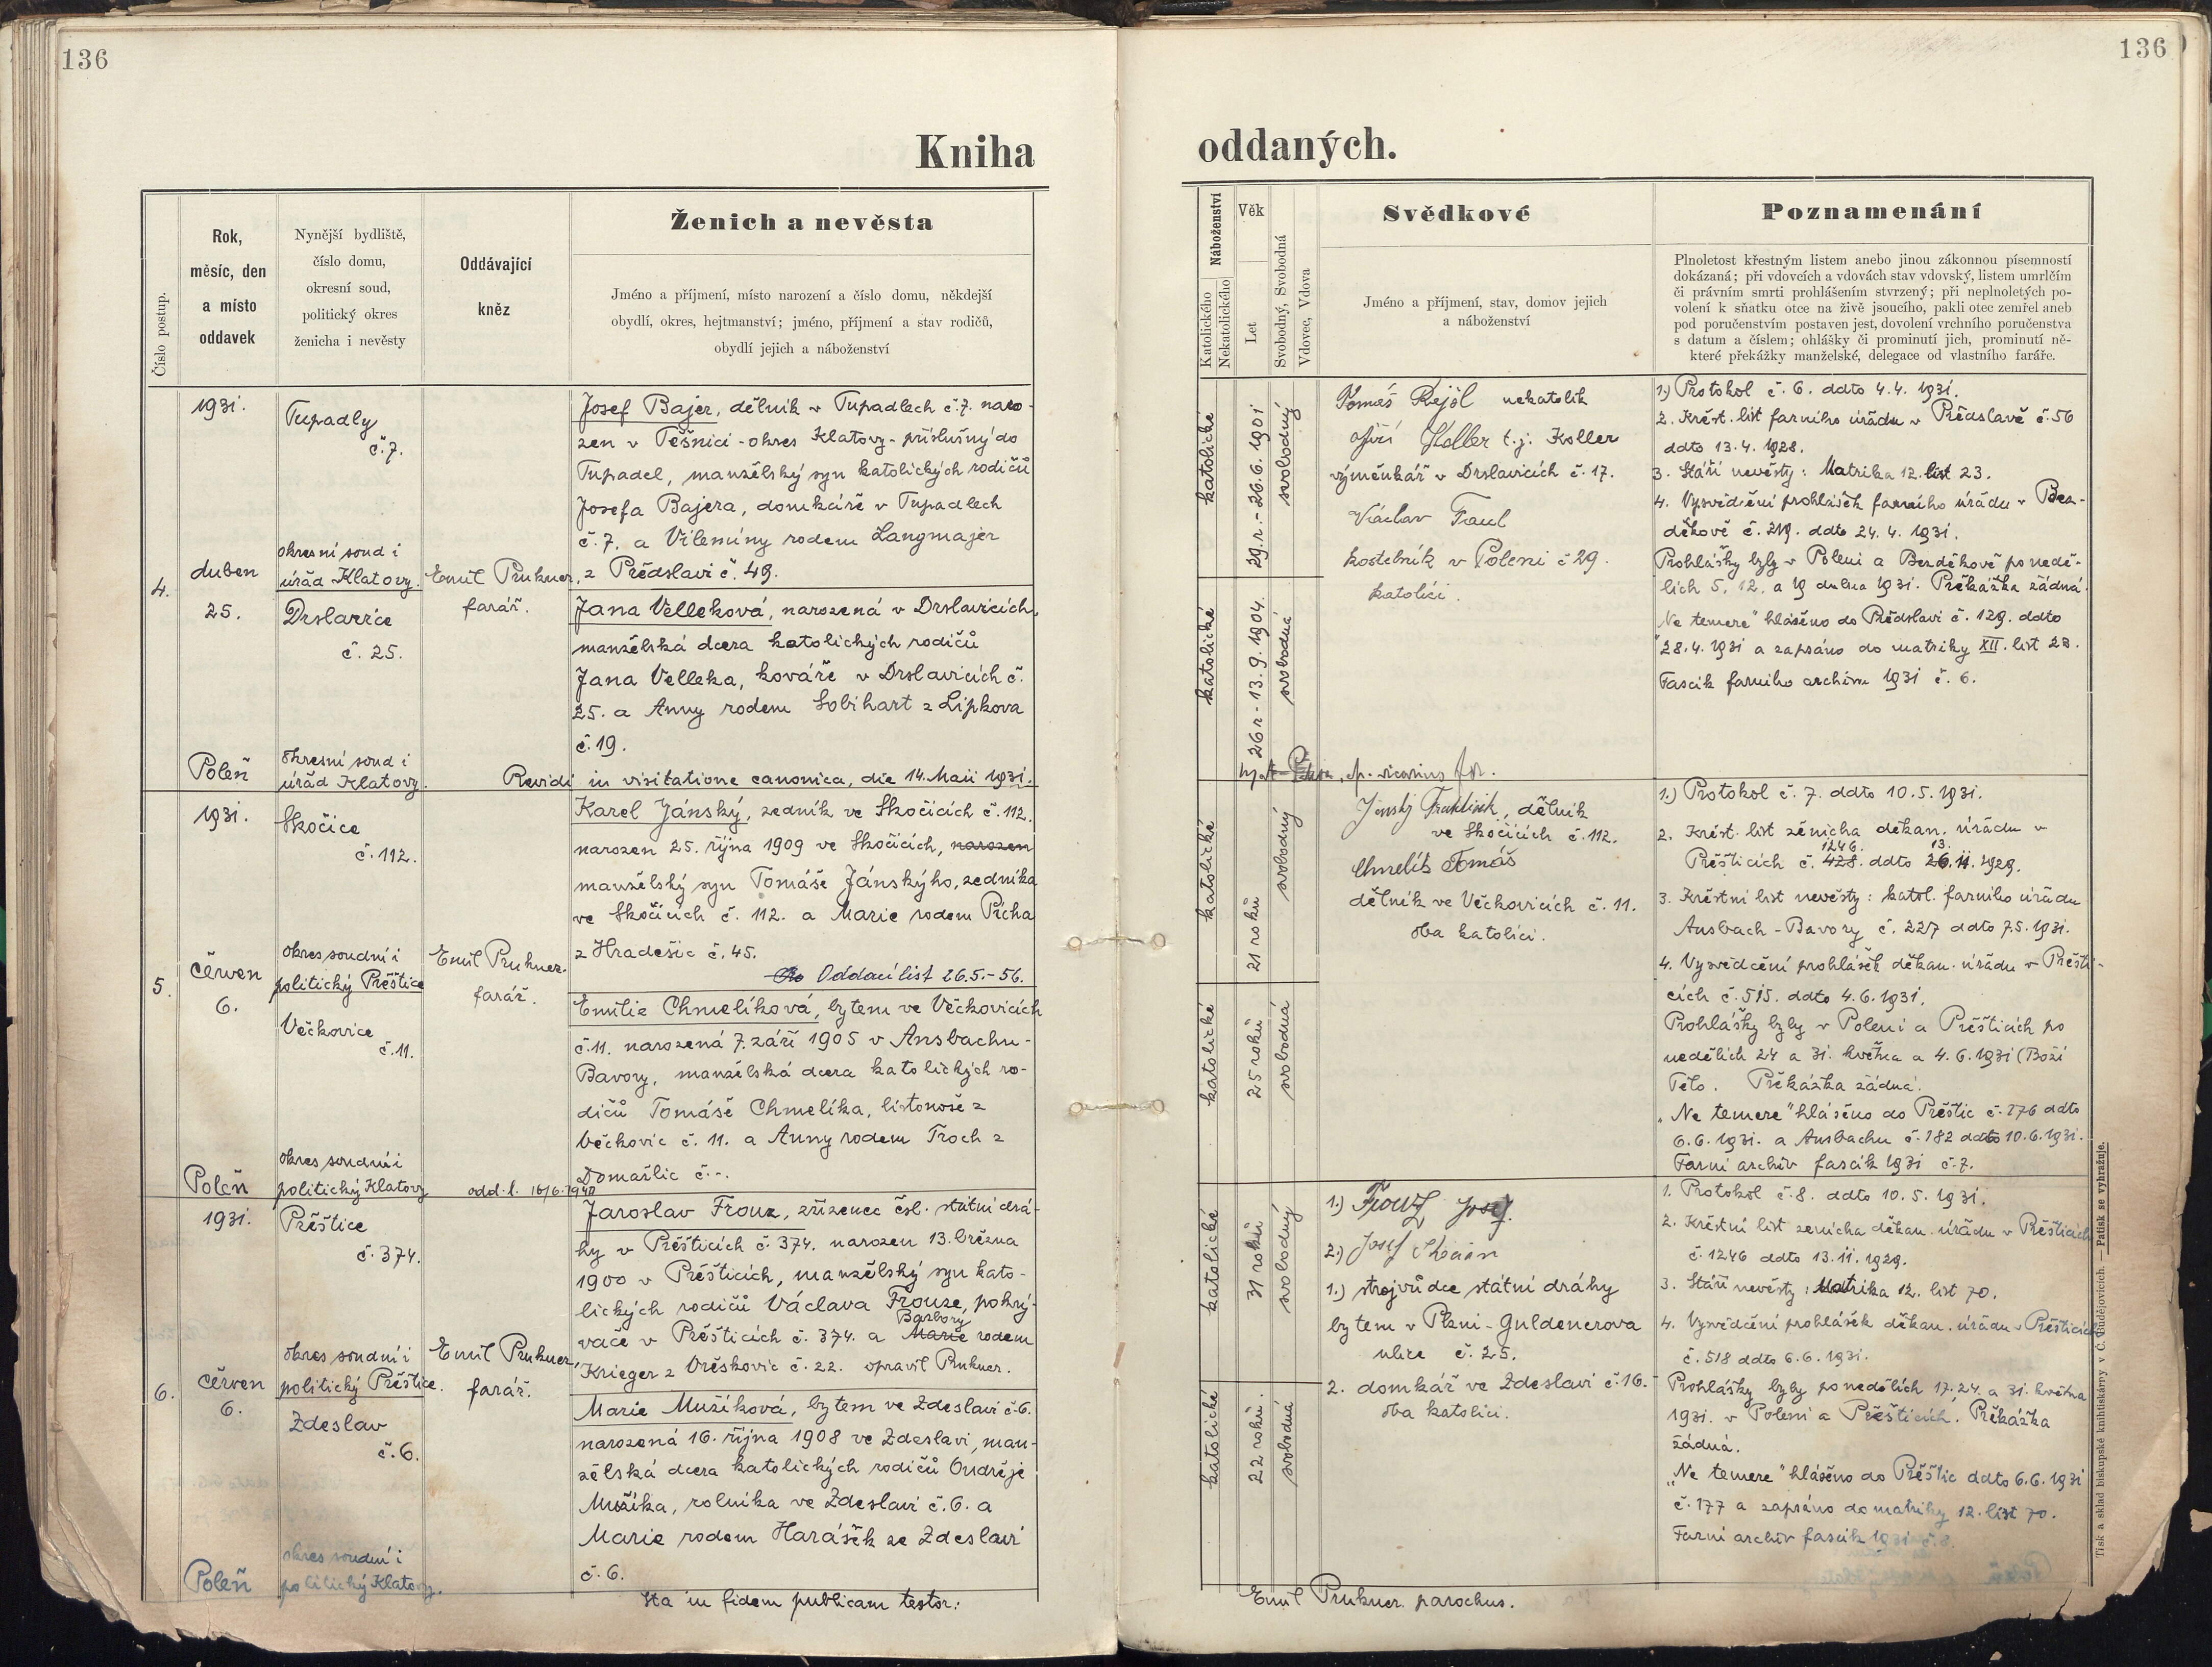 136
136
Kniha
oddaných.
Číslo postup.
Rok,
měsíc, den
a místo
oddavek
Nynější bydliště,
číslo domu,
okresní soud,
politický okres
ženicha i nevěsty
Oddávající
kněz
Ženich a nevěsta
Jméno a příjmení, místo narození a číslo domu, někdejší
obydlí, okres, hejtmanství; jméno, příjmení a stav rodičů,
obydlí jejich a náboženství
Náboženství
Katolického
Nekatolického
Věk
Let
Svobodný, Svobodná
Vdovec, Vdova
Svědkové
Jméno a příjmení, stav, domov jejich
a náboženství
Poznamenání
Plnoletost křestným listem anebo jinou zákonnou písemností
dokázaná; při vdovcích a vdovách stav vdovský, listem umrlčím
či právním smrti prohlášením stvrzený; při neplnoletých po-
volení k sňatku otce na živě jsoucího, pakli otec zemřel aneb
pod poručenstvím postaven jest, dovolení vrchního poručenstva
s datum a číslem; ohlášky či prominutí jich, prominutí ně-
které překážky manželské, delegace od vlastního faráře.
4.
1931.
duben
25.
Poleň
Tupadly
č. 7.
okresní soud i
úřad Klatovy.
Drslavice
č. 25.
okresní soud i
úřad Klatovy.
Emil Prukner,
farář.
Josef Bajer, dělník v Tupadlech č. 7. naro-
zen v Těšnici - okres Klatovy - příslušný do
Tupadel, manželský syn katolických rodičů
Josefa Bajera, domkáře v Tupadlech
č. 7. a Vilemíny rodem Langmajer
z Předslavi č. 49.
Jana Velleková, narozená v Drslavicích,
manželská dcera katolických rodičů
Jana Velleka, kováře v Drslavicích č.
25. a Anny rodem Sobihart z Lipkova
č. 19.
Revidi in visitatione canonica, die 14. Maii 1931.
vicarius
katolické
29. r. - 26.6.1901
svobodný
katolické
26 r - 13.9.1904.
svobodná
Tomáš Rejöl nekatolík
Jiří Koller t. j. Koller
výměnkář v Drslavicích č. 17.
Václav Faul
kostelník v Poleni č 29.
katolíci.
1.) Protokol č. 6. ddto 4.4. 1931.
2. Křest. list farního úřadu v Předslavě č. 56
ddto 13.4. 1928.
3. Stáří nevěsty: Matrika 12. list 23.
4. Vysvědčení prohlášek farního úřadu v Bez-
děkově č. 219. ddto 24.4. 1931.
Prohlášky byly v Poleni a Bezděkově po nedě-
lích 5. 12. a 19 dubna 1931. Překážka žádná.
„Ne temere" hlášeno do Předslavi č. 129. ddto
28.4.1931 a zapsáno do matriky XII. list 23.
Fascik farního archivu 1931 č. 6.
5.
1931.
červen
6.
Poleň
Skočice
č. 112.
okres soudní i
politický Přeštice
Věčkovice
č. 11.
okres soudní i
politický Klatovy
Emil Prukner.
farář.
Karel Jánský, zedník ve Skočicích č. 112.
narozen 25. října 1909 ve Skočicích, narozen
manželský syn Tomáše Jánskýho, zedníka
ve Skočicích č. 112. a Marie rodem Pícha
z Hradešic č. 45.
Oddací list 26.5.-56.
Emilie Chmelíková, bytem ve Věčkovicích
č. 11. narozená 7. září 1905 v Ansbachu -
Bavory, manželská dcera katolických ro-
dičů Tomáše Chmelíka, listonoše z
Věčkovic č. 11. a Anny rodem Troch z
Domažlic č --.
odd. l. 16/6. 1940
katolické
21 roků
svobodný
katolické
25 roků
svobodná
Jánský František, dělník
ve Skočicích č. 112.
Chmelík Tomáš
dělník ve Věčkovicích č. 11.
oba katolíci.
1.) Protokol č. 7. ddto 10.5.1931.
2. Křest. list ženicha děkan. úřadu v
1246. 13.
Přešticích č. 428. ddto 26.11.1929.
3. Křestní list nevěsty: katol. farního úřadu
Ansbach - Bavory č. 227 ddto 7.5.1931.
4. Vysvědčení prohlášek děkan. úřadu v Přešti-
cích č. 515. ddto 4.6.1931.
Prohlášky byly v Poleni a Přešticích po
nedělích 24 a 31. května a 4.6.1931 (Boží
Tělo. Překážka žádná.
„Ne temere" hlášeno do Přeštic č. 176 ddto
6.6.1931. a Ansbachu č. 182 ddto 10.6.1931.
Farní archiv fascik 1931 č. 7.
6.
1931.
červen
6.
Poleň
Přeštice
č. 374.
okres soudní i
politický Přeštice.
Zdeslav
č. 6.
okres soudní i
politický Klatovy.
Emil Prukner,
farář.
Jaroslav Frouz, zřízenec čsl. státní drá-
hy v Přešticích č. 374. narozen 13. března
1900 v Přešticích, manželský syn kato-
lických rodičů Václava Frouze, pokrý-
Barbory
vače v Přešticích č. 374. a Marie rodem
Krieger z Vřeskovic č. 22. opravil Prukner.
Marie Mužíková, bytem ve Zdeslavi č. 6.
narozená 16. října 1908 ve Zdeslavi, man-
želská dcera katolických rodičů Ondřeje
Mužíka, rolníka ve Zdeslavi č. 6. a
Marie rodem Harášek ze Zdeslavi
č. 6.
katolické
31 roků
svobodný
katolické
22 roků.
svobodná
1.) Frouz Josef.
2.) Josef
1.) strojvůdce státní dráhy
bytem v Plzni - Guldenerova
ulice č. 25.
2. domkář ve Zdeslavi č. 16.
oba katolíci.
1. Protokol č. 8. ddto 10.5.1931.
2. Křestní list ženicha děkan. úřadu v Přešticích
č. 1246 ddto 13.11.1929.
3. Stáří nevěsty: Matrika 12. list 70.
4. Vysvědčení prohlášek děkan. úřadu v Přešticích
č. 518 ddto 6.6.1931.
Prohlášky byly po nedělích 17. 24. a 31. května
1931. v Poleni a Přešticích. Překážka
žádná.
„Ne temere" hlášeno do Přeštic ddto 6.6.1931
č. 177 a zapsáno do matriky 12. list 70.
Farní archiv fascik 1931 č. 8.
Ita in fidem publicam testor:
Emil Prukner parochus.
Tisk a sklad biskupské knihtiskárny v Č. Budějovicích. — Patisk se vyhražuje.